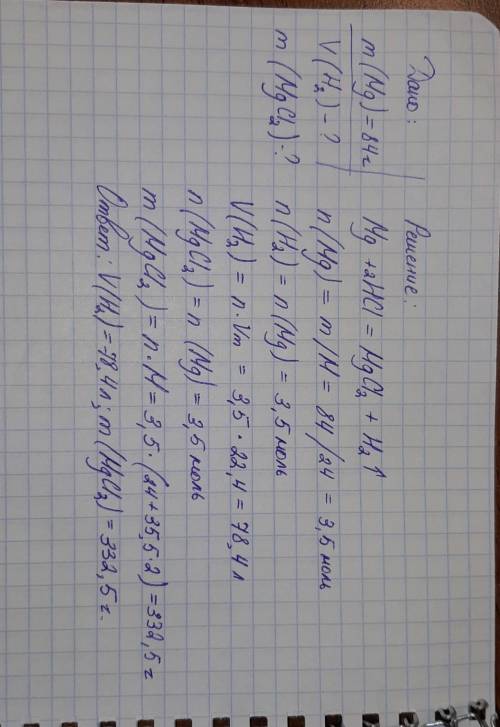 Дано:
m(Mg)=84г
V(H₂)-?
m(MgCl₂)-?
Решение:
Mg+2HCl=MgCl₂+H₂↑
n(Mg)=m/M=84/24=3,5 моль
n(H₂)=n(Mg)=3,5 моль
V(H₂)=n·Vm=3,5·22,4=78,4л
n(MgCl₂)=n(Mg)=3,5 моль
m(MgCl₂)=n·M=3,5·(24+35,5·2)=332,5г
Ответ: V(H₂)=78,4л; m(MgCl₂)=332,5г.